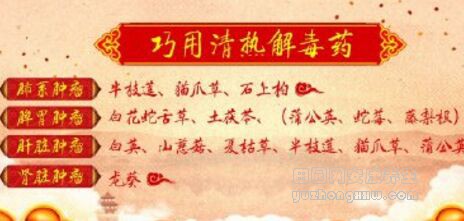 巧用清热解毒药
肺系肿瘤 半枝莲、猫爪草、石上柏
脾胃肿瘤 白花蛇舌草、土茯苓、(蒲公英、蛇莓、藤梨根)
肝脏肿瘤 白英、山慈菇、夏枯草、半枝莲、猫爪草、蒲公英
肾脏肿瘤 龙葵